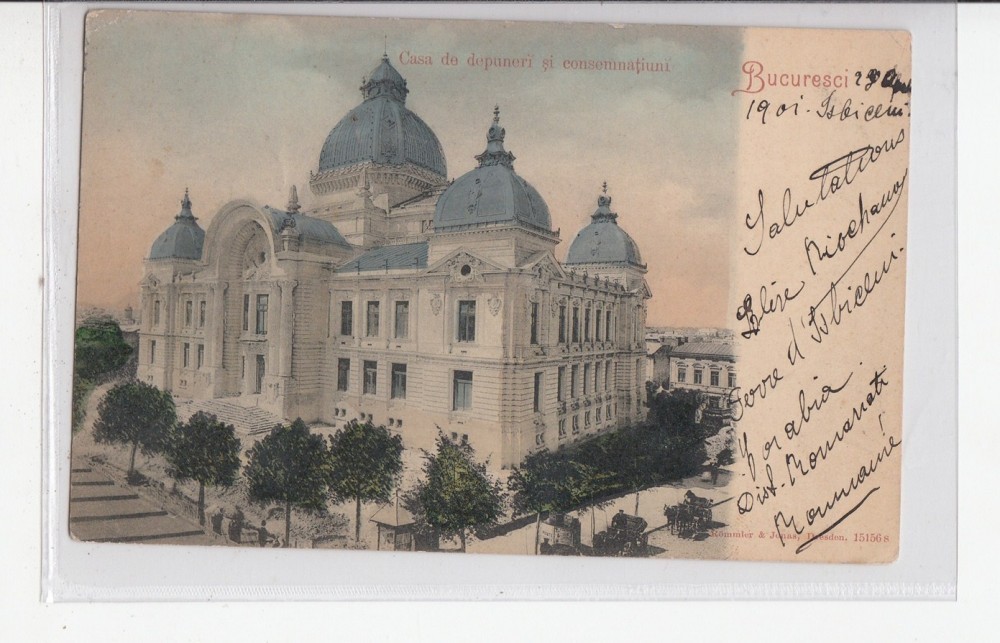 Casa de depunerĭ și consemnațiunĭ
Bucuresci 29
1901. Isbiceni.
Salutations
Elise
Terre d'Isbiceni.
Corabia
Dist. Romanati
Roumanie
Römmler & Jonas, Dresden, 15156 s